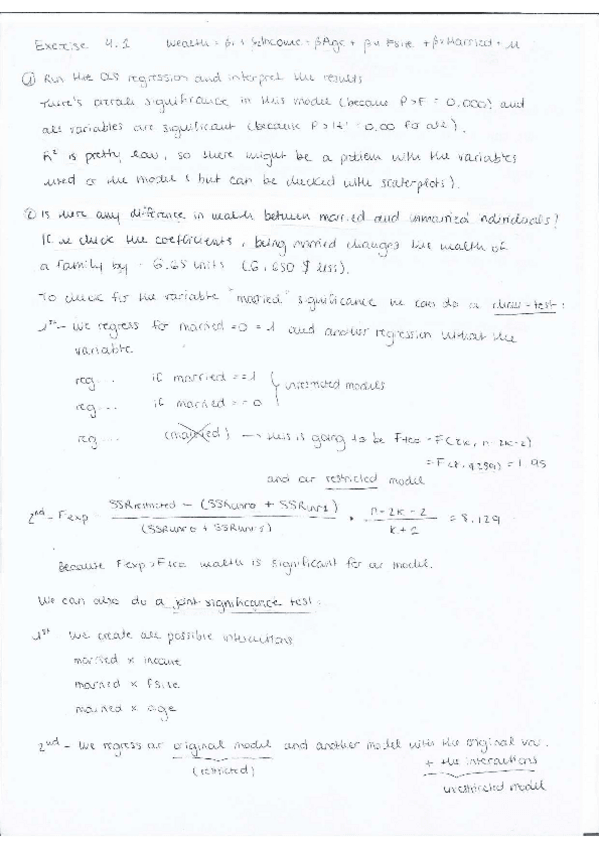 Exercise 4.1 Wealth = β1 + β2Income + βAge + β4 Fsize + β5 Married + u
① Run the OLS regression and interpret the results
There's overall significance in this model (because P>F = 0,000) and
all variables are significant (because P>|t| = 0.00 for all).
R² is pretty low, so there might be a problem with the variables
used or the model (but can be checked with scaterplots).
② Is there any difference in wealth between married and unmarried individuals?
If we check the coefficients, being married changes the wealth of
a family by - 6.65 units (6,650 $ less).
To check for the variable "married" significance we can do a chow-test:
1st - We regress for married =0 = 1 and another regression without the
variable.
reg... if married ==1
unrestricted models
reg... if married == 0
reg... (married) → this is going to be F = F(2K, n-2K-2)
= 1.95
and our restricted model
2nd - Fexp = SSRrestricted - (SSRunr0 + SSRunr1) / (SSRunr0 + SSRunr1) • n-2K-2 / K+1 = 8.129
Because Fexp > Fteo wealth is significant for our model.
We can also do a joint significance test:
1st We create all possible interactions
married x income
married x fsize
married x age
2nd - We regress our original model and another model with the original var.
+ the interactions
(restricted)
unrestricted model